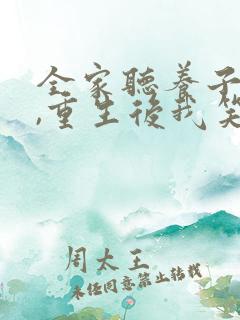 全家聽養子
,重生後我笑
周太王
未經同意禁止轉載